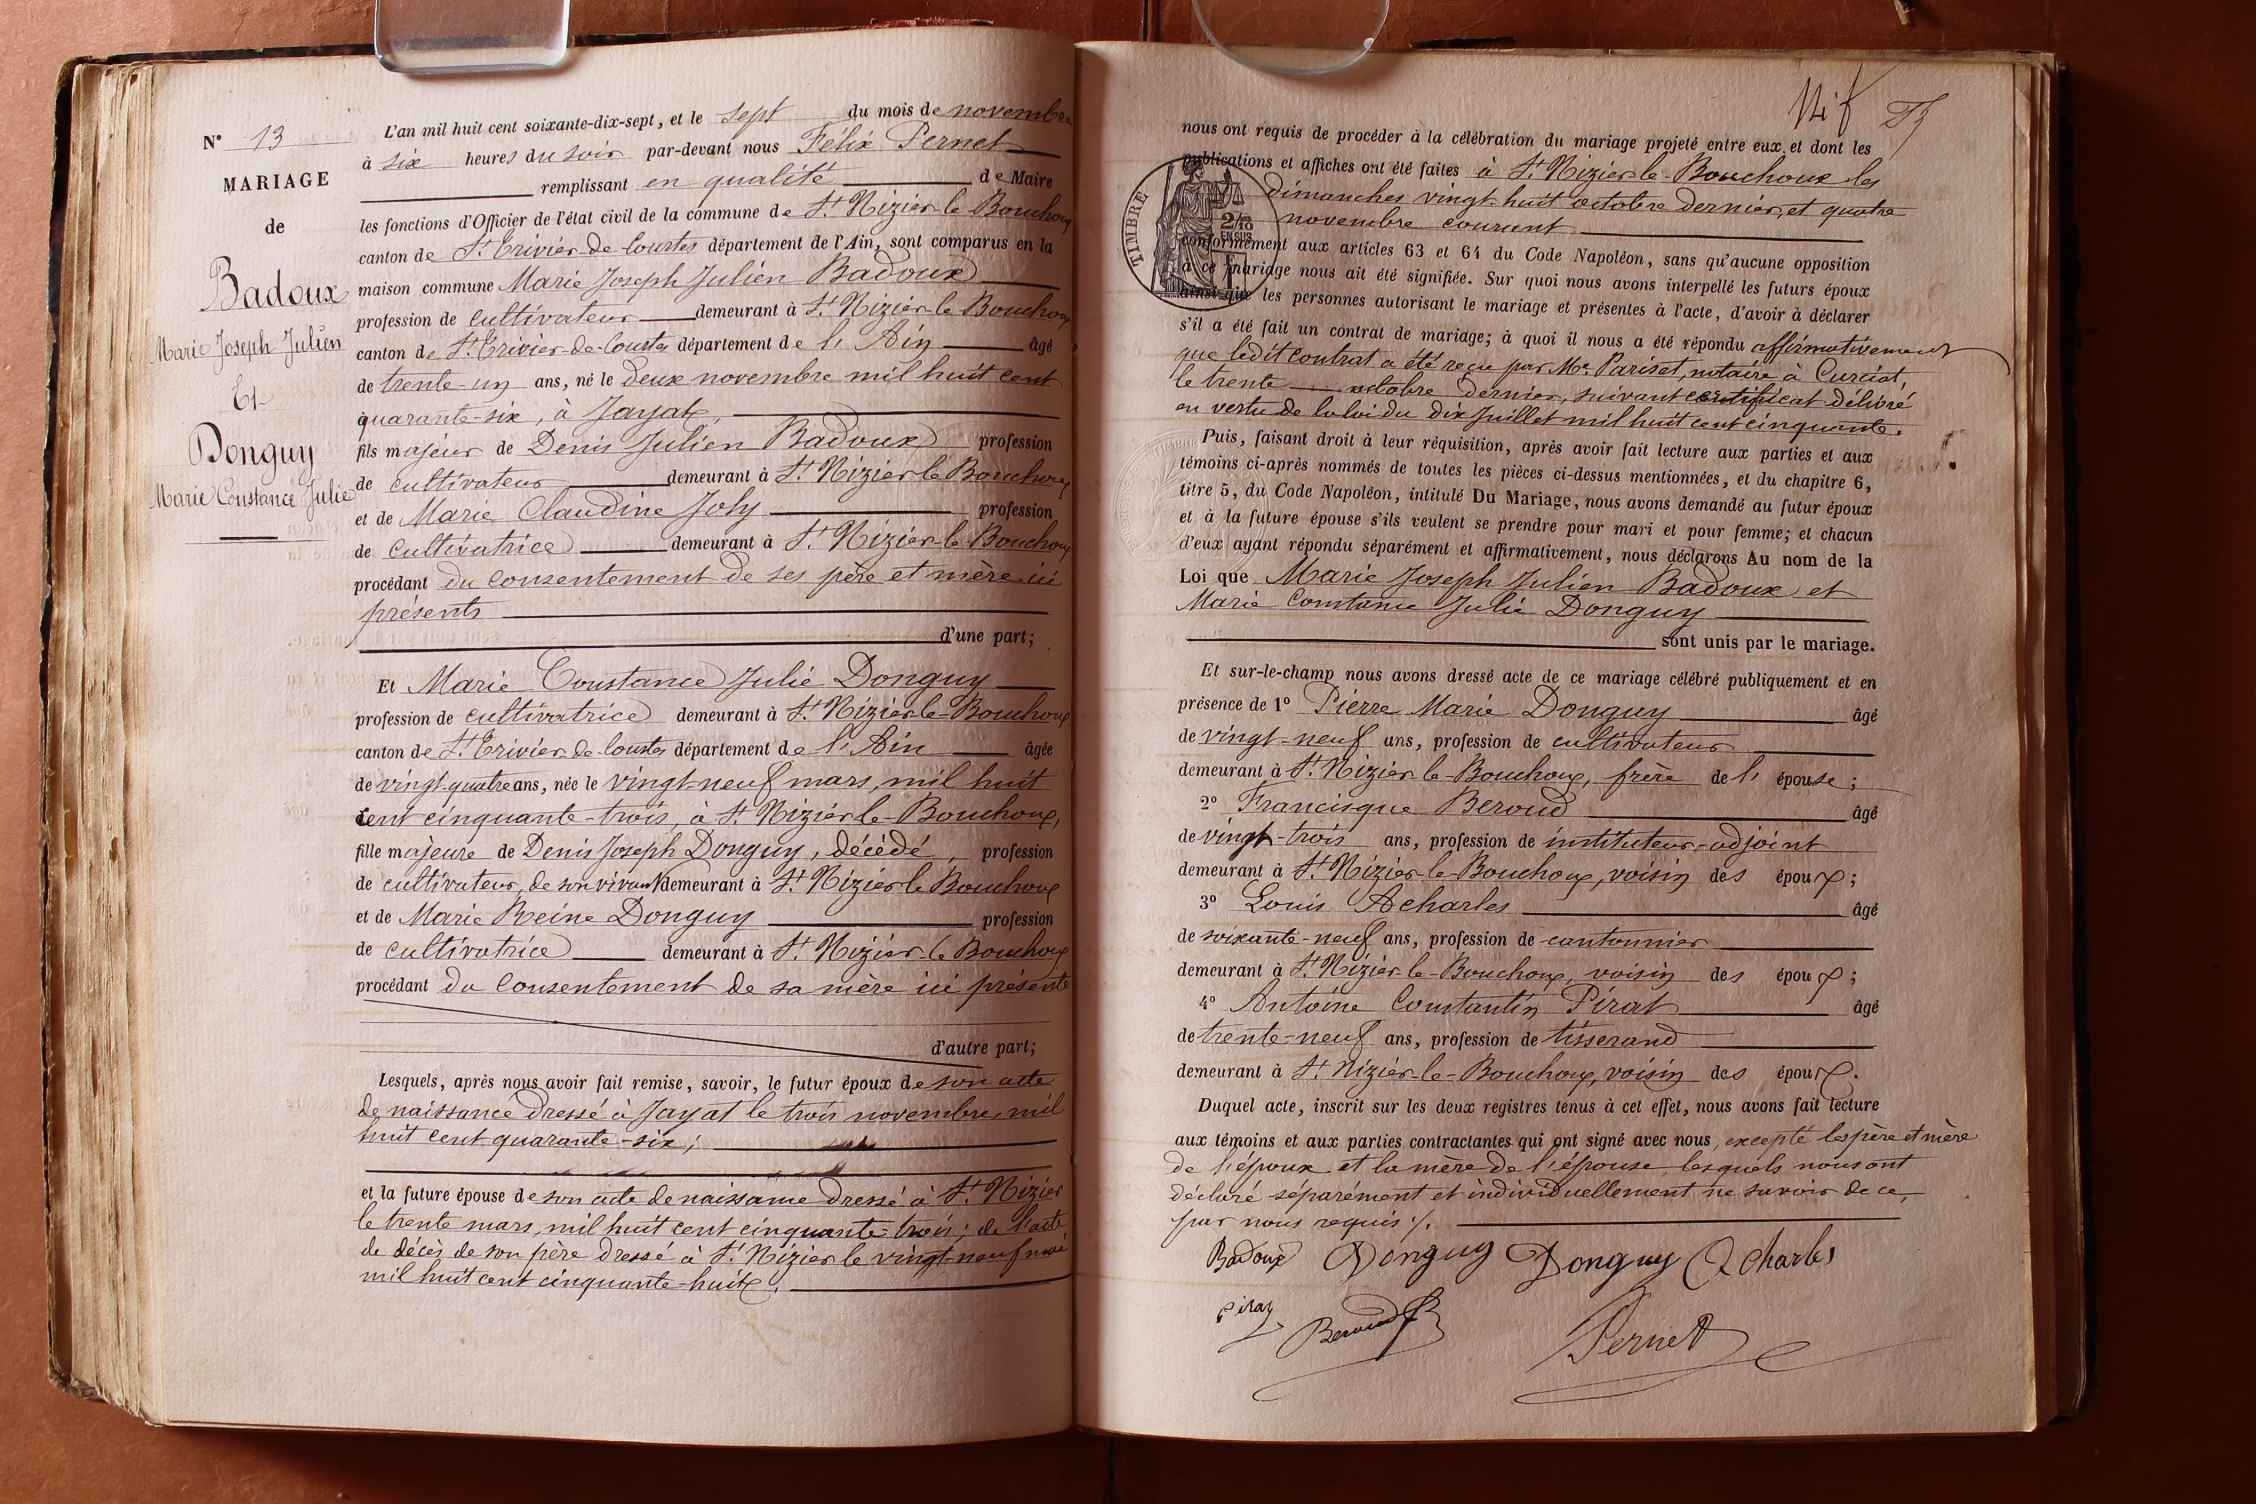 N° 13
MARIAGE
de
Badoux
Marie Joseph Julien
Et
Donguy
Marie Constance Julie
L'an mil huit cent soixante-dix-sept, et le sept du mois de novembre
à six heures du soir par-devant nous Félix Pernet
remplissant en qualité de Maire
les fonctions d'Officier de l'état civil de la commune de St Nizier-le Bouchoux
canton de St Trivier-de-Courtes département de l'Ain, sont comparus en la
maison commune Marie Joseph Julien Badoux
profession de cultivateur demeurant à St Nizier-le Bouchoux
canton de St Trivier-de-Courtes département de l'Ain âgé
de trente-un ans, né le deux novembre mil huit cent
quarante-six, à Jayat,
fils majeur de Denis Julien Badoux profession
de cultivateur demeurant à St Nizier-le Bouchoux
et de Marie Claudine Joly profession
de cultivatrice demeurant à St Nizier-le-Bouchoux
procédant du consentement de ses père et mère ici
présents
d'une part;
Et Marie Constance Julie Donguy
profession de cultivatrice demeurant à St Nizier-le-Bouchoux
canton de St Trivier-de-Courtes département de l'Ain âgée
de vingt-quatre ans, née le vingt-neuf mars, mil huit
cent cinquante-trois, à St Nizier-le-Bouchoux,
fille majeure de Denis Joseph Donguy, décédé, profession
de cultivateur, de son vivant demeurant à St Nizier-le Bouchoux
et de Marie Reine Donguy profession
de cultivatrice demeurant à St Nizier-le Bouchoux
procédant du consentement de sa mère ici présente
d'autre part;
Lesquels, après nous avoir fait remise, savoir, le futur époux de son acte
de naissance dressé à Jayat le trois novembre, mil
huit cent quarante-six;
et la future épouse de son acte de naissance dressé à St Nizier
le trente mars, mil huit cent cinquante-trois; de l'acte
de décès de son père dressé à St Nizier le vingt-neuf mai
mil huit cent cinquante-huit.
nous ont requis de procéder à la célébration du mariage projeté entre eux, et dont les
publications et affiches ont été faites à St Nizier-le-Bouchoux les
dimanches vingt-huit octobre dernier, et quatre
novembre courant
TIMBRE
2/10
EN SUS
conformément aux articles 63 et 64 du Code Napoléon, sans qu'aucune opposition
à ce mariage nous ait été signifiée. Sur quoi nous avons interpellé les futurs époux
ainsi que les personnes autorisant le mariage et présentes à l'acte, d'avoir à déclarer
s'il a été fait un contrat de mariage; à quoi il nous a été répondu affirmativement
que ledit contrat a été reçu par Me Pariset, notaire à Curciat,
le trente octobre dernier, suivant certificat délivré
en vertu de la loi du dix Juillet mil huit cent cinquante.
Puis, faisant droit à leur réquisition, après avoir fait lecture aux parties et aux
témoins ci-après nommés de toutes les pièces ci-dessus mentionnées, et du chapitre 6,
titre 5, du Code Napoléon, intitulé Du Mariage, nous avons demandé au futur époux
et à la future épouse s'ils veulent se prendre pour mari et pour femme; et chacun
d'eux ayant répondu séparément et affirmativement, nous déclarons Au nom de la
Loi que Marie Joseph Julien Badoux et
Marie Constance Julie Donguy
sont unis par le mariage.
Et sur-le-champ nous avons dressé acte de ce mariage célébré publiquement et en
présence de 1° Pierre Marie Donguy âgé
de vingt-neuf ans, profession de cultivateur
demeurant à St Nizier-le-Bouchoux, frère de l'épouse;
2° Francisque Beroud âgé
de vingt-trois ans, profession de instituteur-adjoint
demeurant à St Nizier-le-Bouchoux, voisin des époux;
3° Louis Acharles âgé
de soixante-neuf ans, profession de cantonnier
demeurant à St Nizier-le-Bouchoux, voisin des époux;
4° Antoine Constantin Pirat âgé
de trente-neuf ans, profession de tisserand
demeurant à St Nizier-le-Bouchoux, voisin des époux.
Duquel acte, inscrit sur les deux registres tenus à cet effet, nous avons fait lecture
aux témoins et aux parties contractantes qui ont signé avec nous, excepté les père et mère
de l'époux et la mère de l'épouse, lesquels nous ont
déclaré séparément et individuellement ne savoir de ce,
par nous requis ./.
Badoux Donguy Donguy Acharles
Pirat Beroud Pernet